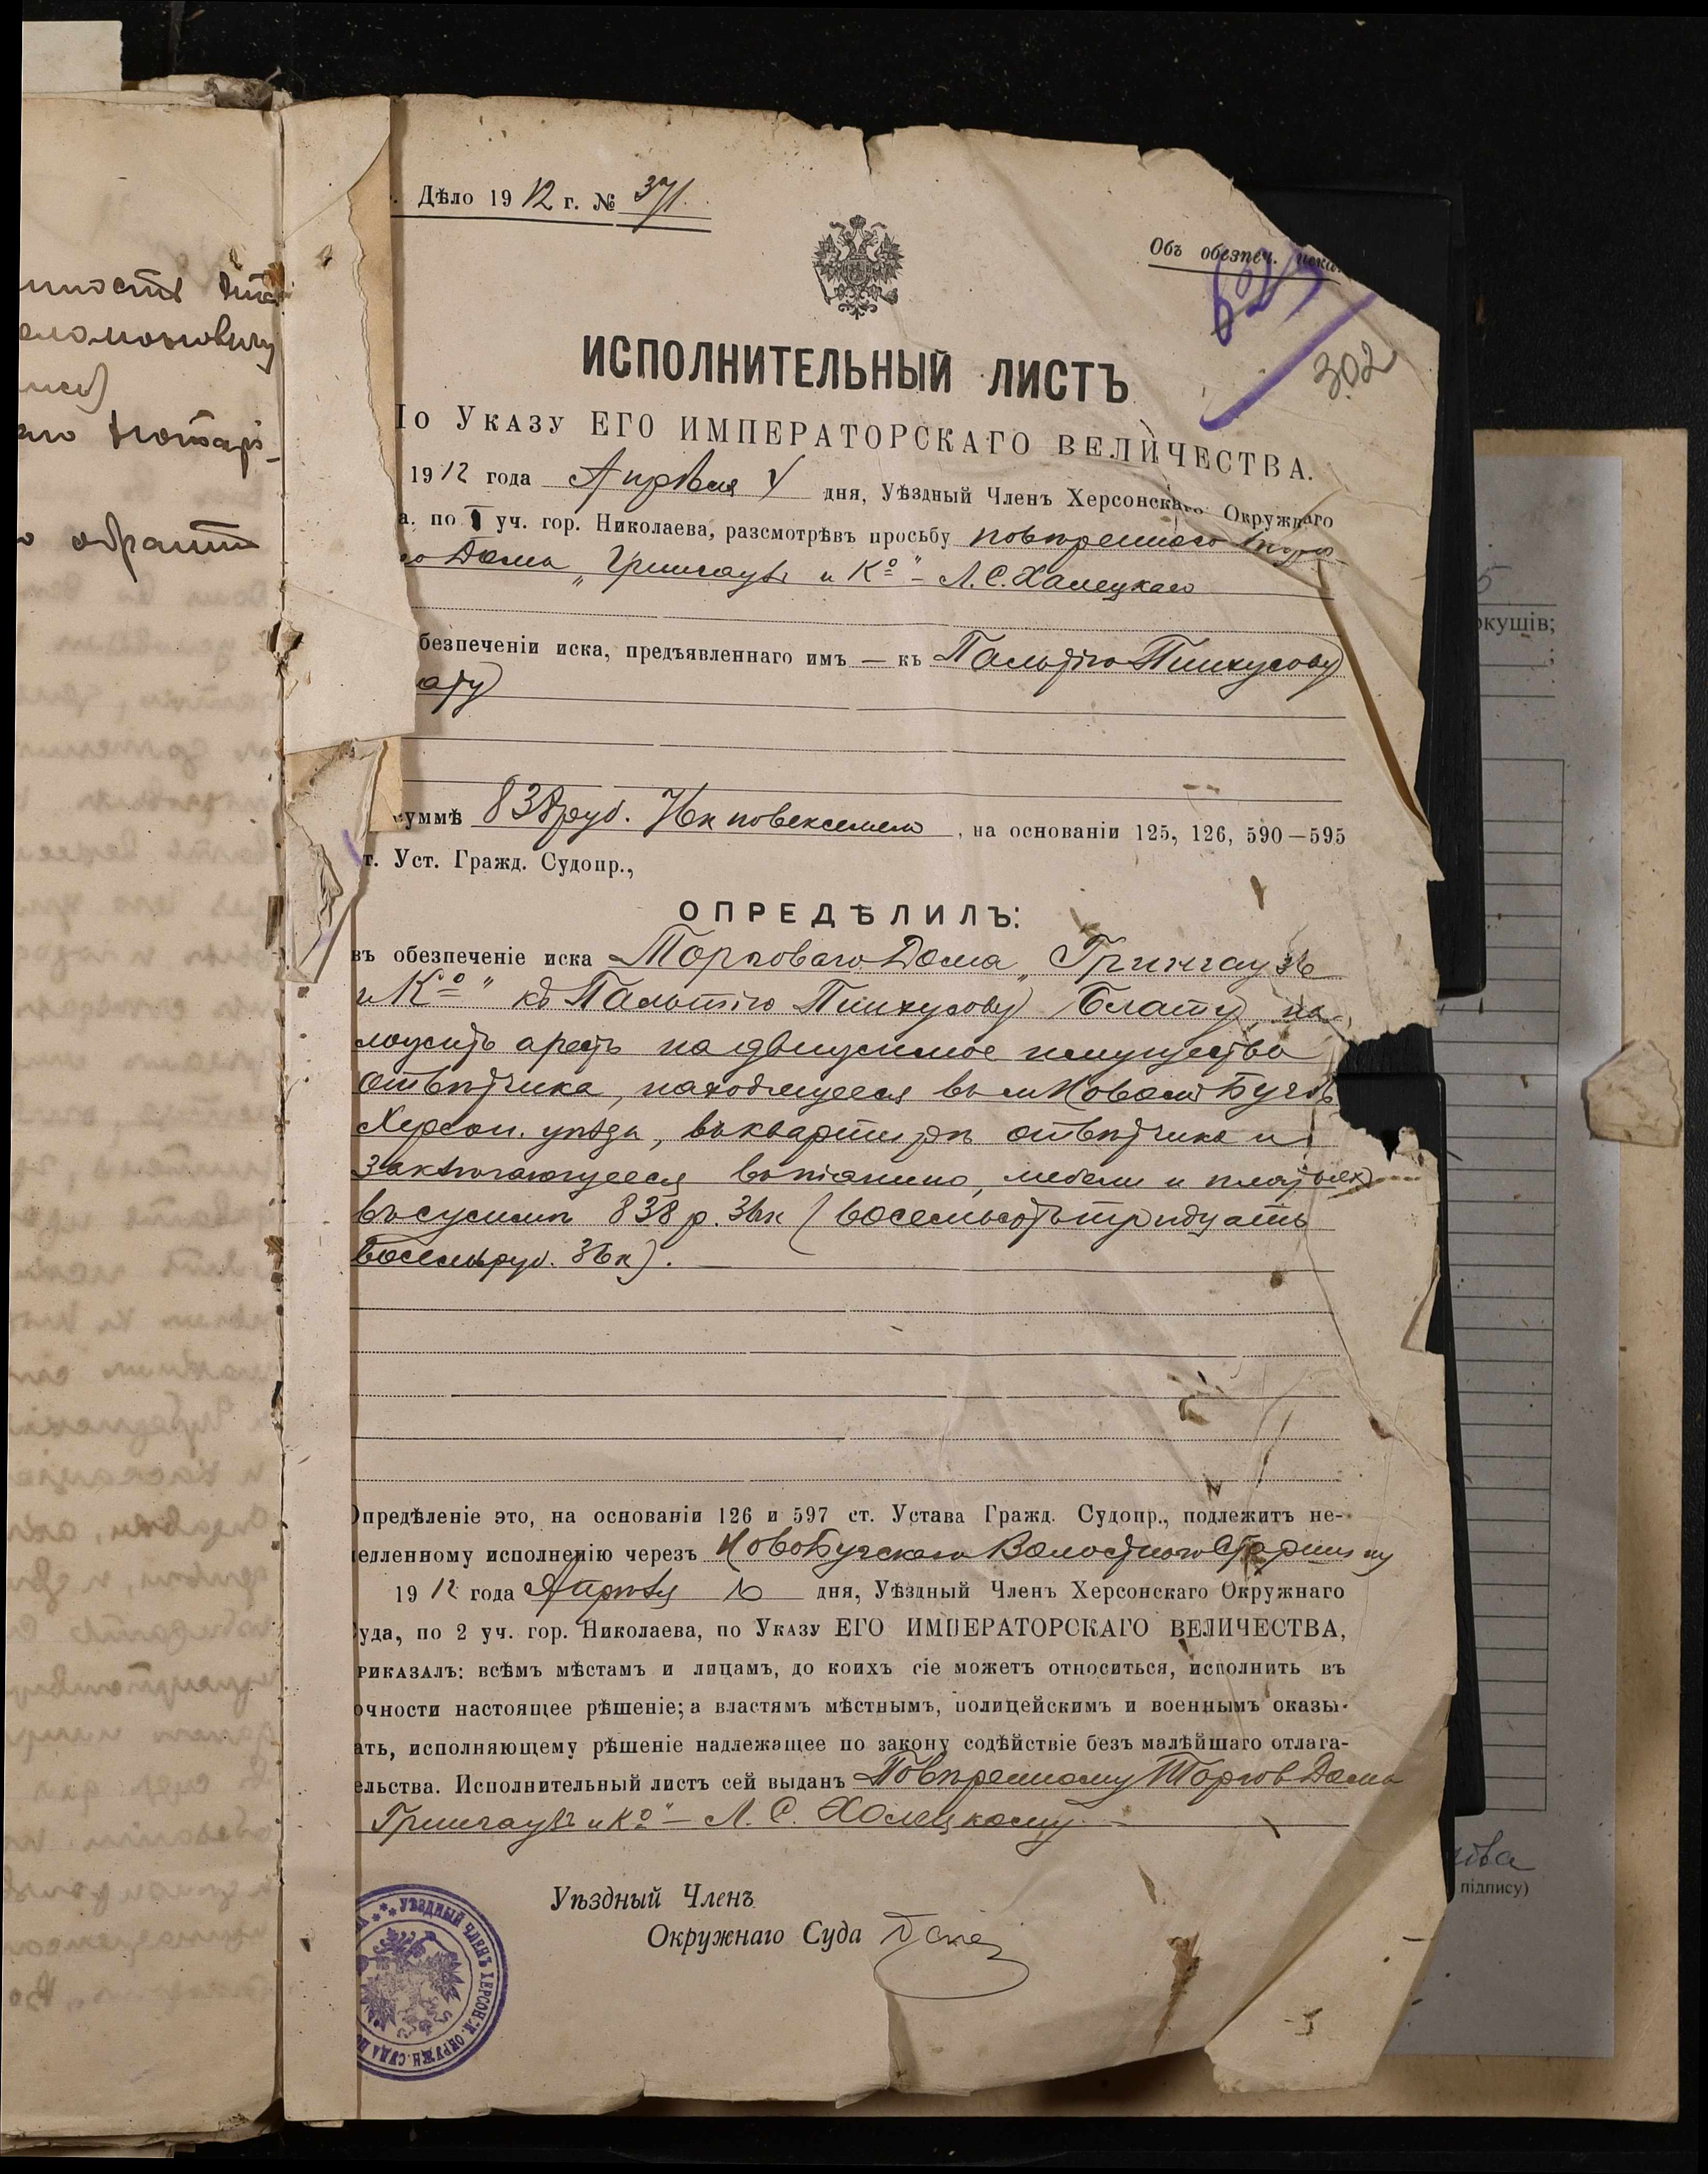 Дѣло 1912 г. № 371.
Объ обезпеч. иска
302
ИСПОЛНИТЕЛЬНЫЙ ЛИСТЪ
По УКАЗУ ЕГО ИМПЕРАТОРСКАГО ВЕЛИЧЕСТВА.
1912 года Апрѣля 4 дня, Уѣздный Членъ Херсонскаго Окружнаго
а. по уч. гор. Николаева, разсмотрѣвъ просьбу повѣреннаго
го Дома „Грингаузъ и Ко" – Л. С. Халецкаго
безпеченіи иска, предъявленнаго имъ — къ Пальтію Пинхусову
ату
уммѣ 838 руб. 36к по векселю, на основаніи 125, 126, 590—595
т. Уст. Гражд. Судопр.,
ОПРЕДѢЛИЛЪ:
въ обезпеченіе иска Торговаго Дома „Грингаузъ
и Ко" къ Пальтію Пинхусову Блату, на
ложить арестъ на движимое имущество
отвѣтчика, находящееся въ м Новомъ Бугѣ
Херсон. уѣзда, въ квартирѣ отвѣтчика и
заключающееся въ піанино, мебели и платьяхъ
въ суммѣ 838 р. 36к (восемьсотъ тридцать
восемь руб. 36к).
Опредѣленіе это, на основаніи 126 и 597 ст. Устава Гражд. Судопр., подлежитъ не-
едленному исполненію черезъ НовоБугскаго Волостного Старшину
1912 года Апрѣля 10 дня, Уѣздный Членъ Херсонскаго Окружнаго
уда, по 2 уч. гор. Николаева, по УКАЗУ ЕГО ИМПЕРАТОРСКАГО ВЕЛИЧЕСТВА,
РИКАЗАЛЪ: всѣмъ мѣстамъ и лицамъ, до коихъ сіе можетъ относиться, исполнить въ
очности настоящее рѣшеніе; а властямъ мѣстнымъ, полицейскимъ и военнымъ оказы-
ать, исполняющему рѣшеніе надлежащее по закону содѣйствіе безъ малѣйшаго отлага-
ельства. Исполнительный листъ сей выданъ Повѣренному Торгов Дома
Грингаузъ и Ко" – Л. С. Халецкому.
Уѣздный Членъ
Окружнаго Суда
УѢЗДНЫЙ ЧЛЕНЪ ХЕРСОН. ОКРУЖН. СУДА
підпису)